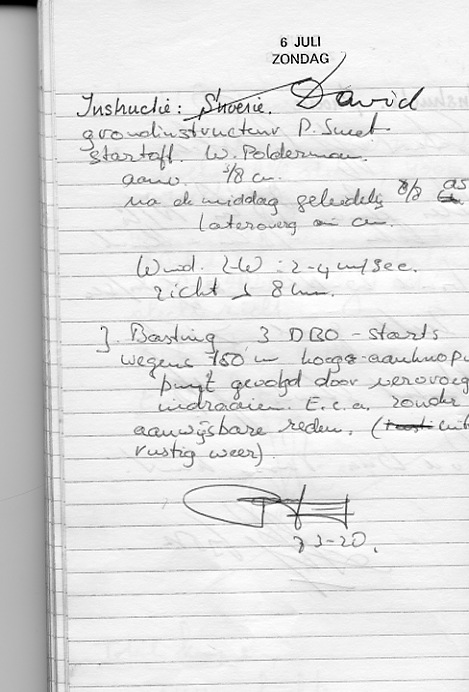 6 JULI
ZONDAG
Instructie: David
grondinstructeur P. Smet
startoff. W. Polderman.
aanv. 3/8 cu.
na de middag geleidelijk 8/8 as
cu.
Wind. Z-W : 2-4 m/sec.
zicht 8 km.
J. Basting 3 DBO-starts
wegens 150 m hoogs aanknop
punt gevolgd door vervroeg
indraaien. E.e.a. zonder
aanwijsbare reden. (
rustig weer).